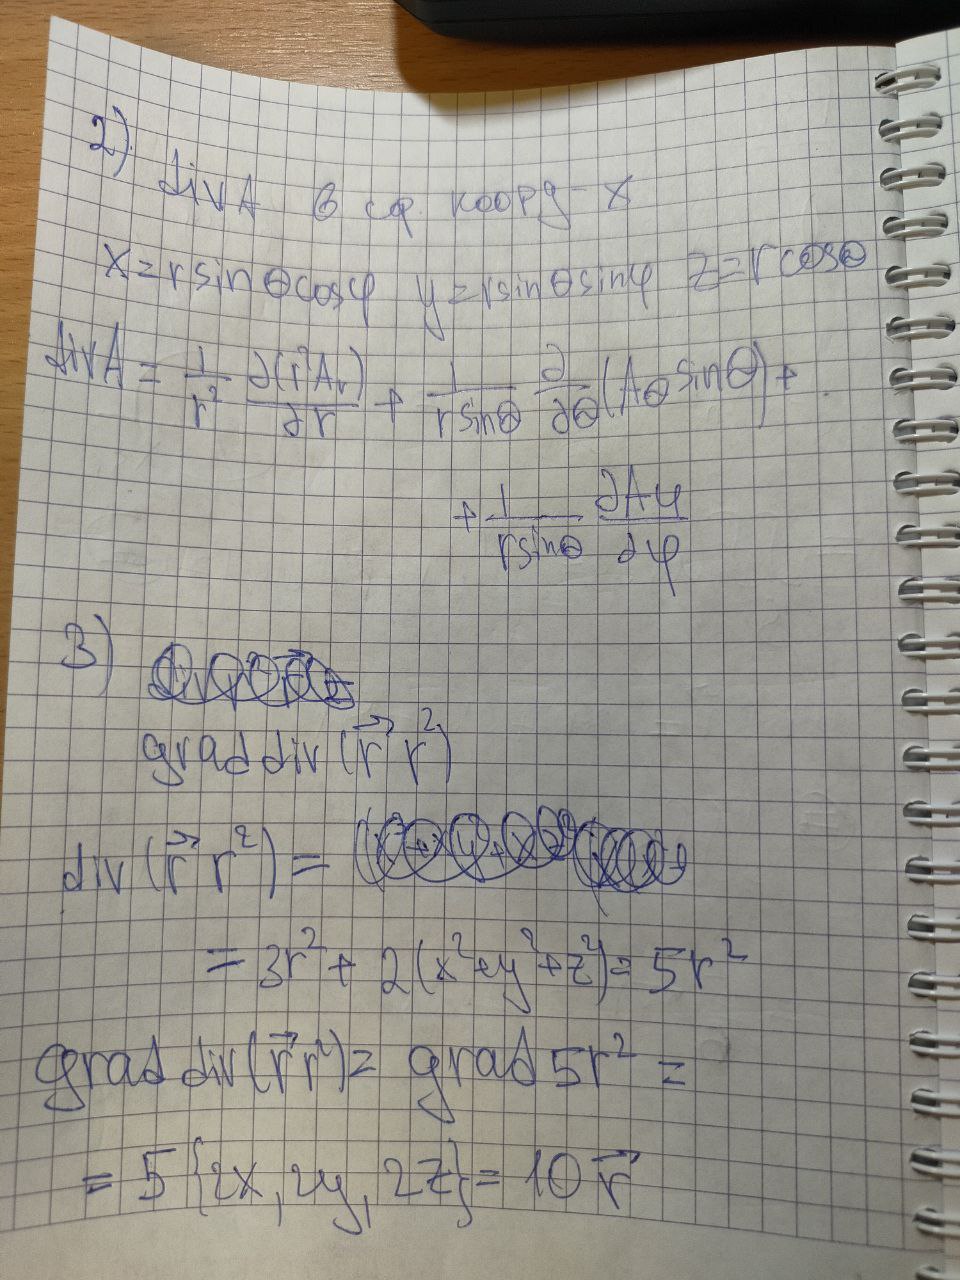 2)
div A в сф. коорд-х
x = r sinθ cosφ y = r sinθ sinφ z = r cosθ
div A = 1/r² ∂(r²Aᵣ)/∂r + 1/(r sinθ) ∂/∂θ (Aθ sinθ) +
+ 1/(r sinθ) ∂Aφ/∂φ
3)
grad div (r⃗ r²)
div (r⃗ r²) =
= 3r² + 2(x² + y² + z²) = 5r²
grad div (r⃗ r²) = grad 5r² =
= 5 {2x, 2y, 2z} = 10 r⃗